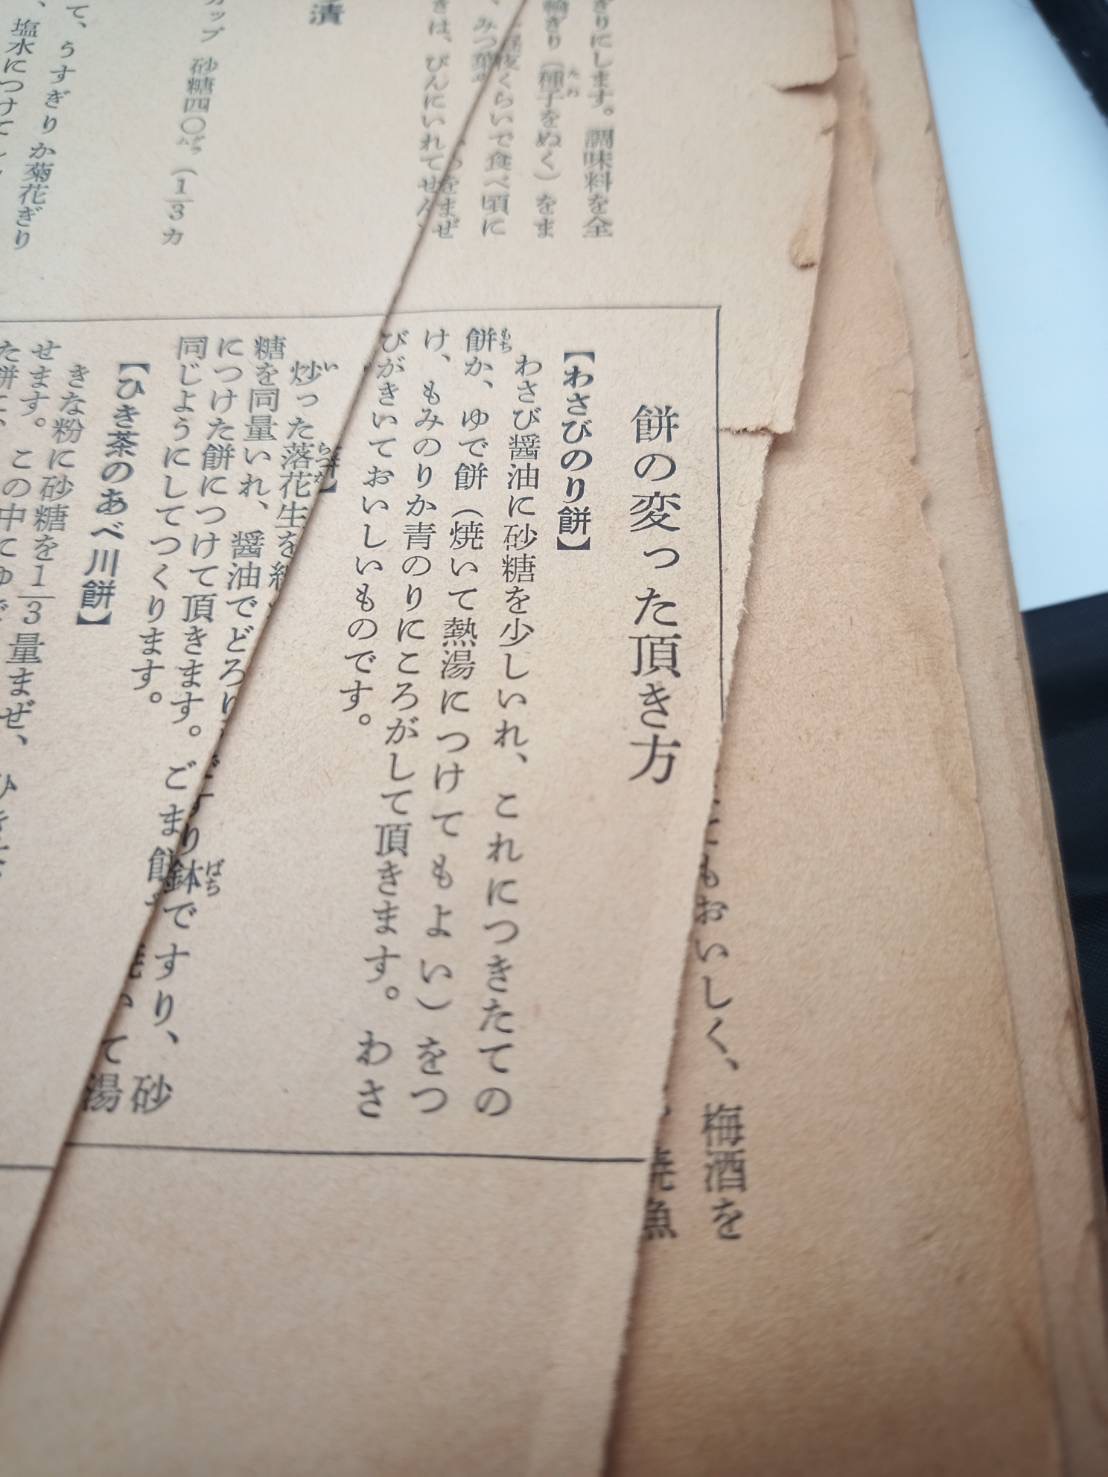 ぎりにします。調味料を全
輪ぎり(種子をぬく)をま
くらいで食べ頃に
きは、びんにいれてせん
をまぜ
漬
カップ 砂糖四〇 (1/3カ
て、うすぎりか菊花ぎり
塩水につけて
餅の変った頂き方
【わさびのり餅】
わさび醤油に砂糖を少しいれ、これにつきたての
餅か、ゆで餅(焼いて熱湯につけてもよい)をつ
け、もみのりか青のりにころがして頂きます。わさ
びがきいておいしいものです。
炒った落花生を
すり鉢ですり、砂
糖を同量いれ、醤油でどろり
につけた餅につけて頂きます。ごま
て湯
同じようにしてつくります。
【ひき茶のあべ川餅】
きな粉に砂糖を1/3量まぜ、
せます。この中
もおいしく、梅酒を
焼魚